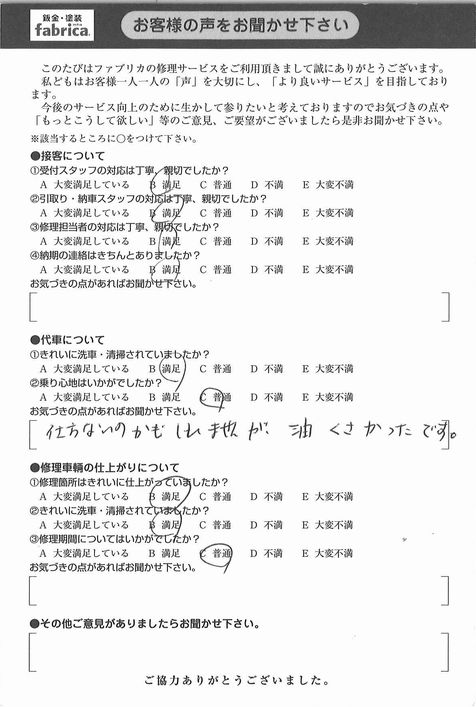 鈑金・塗装
fabrica.
お客様の声をお聞かせ下さい
このたびはファブリカの修理サービスをご利用頂きまして誠にありがとうございます。
私どもはお客様一人一人の「声」を大切にし、「より良いサービス」を目指しており
ます。
今後のサービス向上のために生かして参りたいと考えておりますのでお気づきの点や
「もっとこうして欲しい」等のご意見、ご要望がございましたら是非お聞かせ下さい。
※該当するところに○をつけて下さい。
●接客について
①受付スタッフの対応は丁寧、親切でしたか?
A 大変満足している B 満足 C 普通 D 不満 E 大変不満
②引取り・納車スタッフの対応は丁寧、親切でしたか?
A 大変満足している B 満足 C 普通 D 不満 E 大変不満
③修理担当者の対応は丁寧、親切でしたか?
A 大変満足している B 満足 C 普通 D 不満 E 大変不満
④納期の連絡はきちんとありましたか?
A 大変満足している B 満足 C 普通 D 不満 E 大変不満
お気づきの点があればお聞かせ下さい。
●代車について
①きれいに洗車・清掃されていましたか?
A 大変満足している B 満足 C 普通 D 不満 E 大変不満
②乗り心地はいかがでしたか?
A 大変満足している B 満足 C 普通 D 不満 E 大変不満
お気づきの点があればお聞かせ下さい。
仕方ないのかもしれませんが、油くさかったです。
●修理車輌の仕上がりについて
①修理箇所はきれいに仕上がっていましたか?
A 大変満足している B 満足 C 普通 D 不満 E 大変不満
②きれいに洗車・清掃されていましたか?
A 大変満足している B 満足 C 普通 D 不満 E 大変不満
③修理期間についてはいかがでしたか?
A 大変満足している B 満足 C 普通 D 不満 E 大変不満
お気づきの点があればお聞かせ下さい。
●その他ご意見がありましたらお聞かせ下さい。
ご協力ありがとうございました。